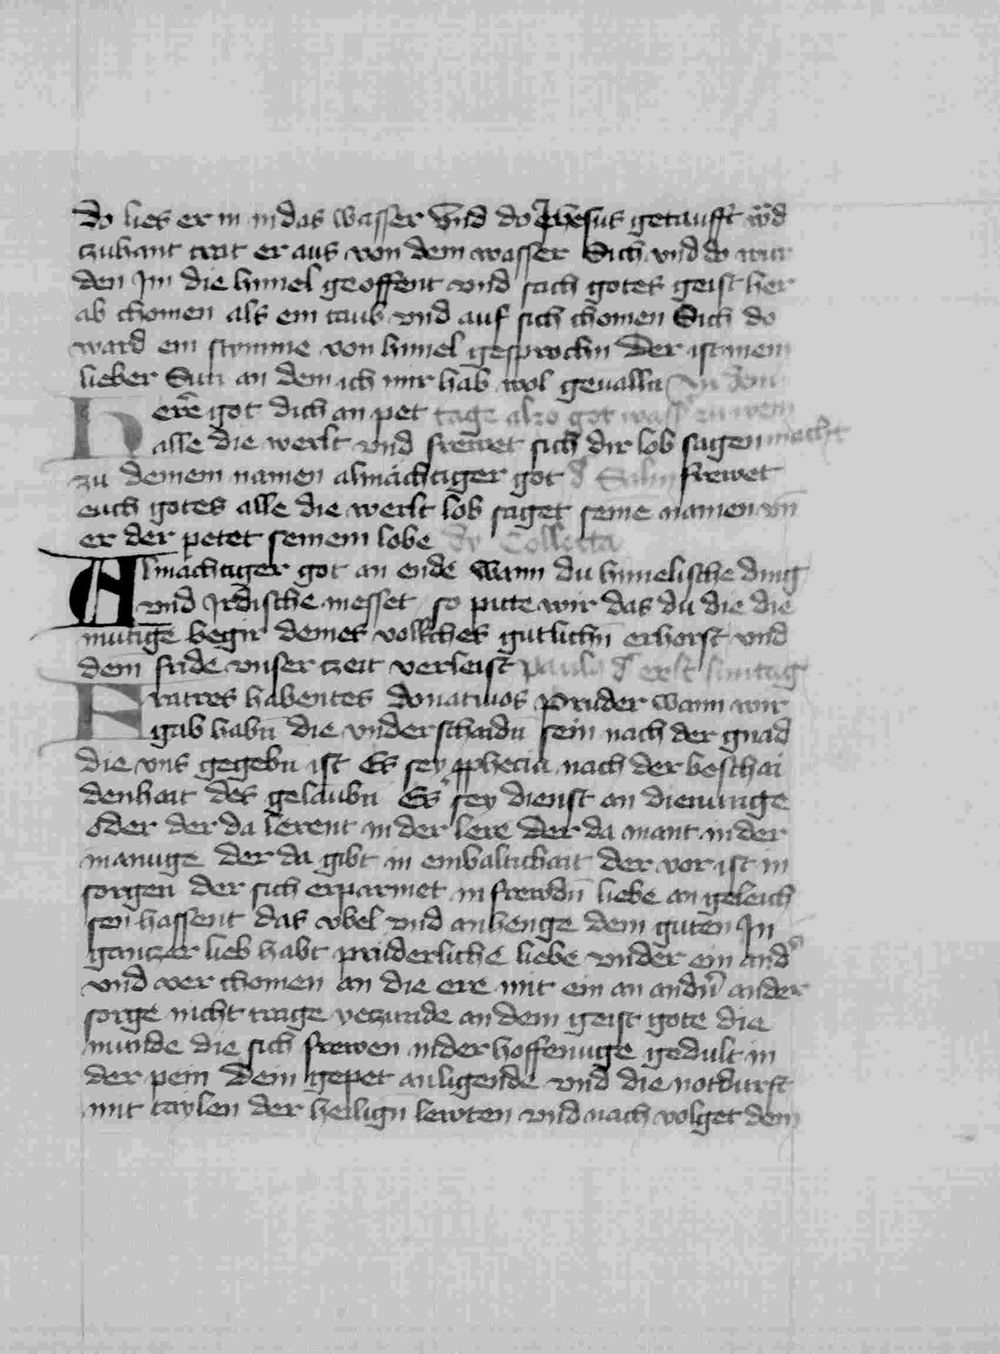 do lies er in in das wasser vnd do Jhesus getaufft wᵒd
tzuhant trat er aus von dem wasser Sich vnd do wur
den Jm die himel geoffent vnd sach gotes geist her
ab chomen als ein taub vnd auf sich chomen Sich do
ward ein stymme von himel gesprochn Der ist mein
lieber Sun an dem ich mir hab wol geualln In dem
Herē got dich an pet tage alzo got wass en wein
alle die werlt vnd frewet sich dir lob sagen macht
zu deinem namen almächtiger got d Salm frewet
euch gotes alle die werlt lob saget seine namen vn̄
er der petet seinem lobe dy Collecta
Almächtiger got an ende wann du himelische ding
vnd Jrdische messet so pitte wir das du die die
mutige begir deines volkches gutlichn̄ erhorst vnd
dein fride vnser tzeit verleist paulꝰ d erst suntag
Fratres habentes donatiuos Prüder wann wir
gab habn̄ die vnderschaidn̄ sein nach der gnad
die vns gegebn ist Es sey ꝓphecia nach der beschai
denhait des gelaubn Es sey dienst an dienunge
oder der da lerent in der lere der da mant in der
manuge der da gibt in einualtichait der vor ist in
sorgen der sich erparmet in frewdn̄ liebe an geleich
sen̄ hassent das vbel vnd anhenge dem guten Jn
gantzer lieb habt prüderliche liebe vnder ein andˀ
vnd ver chomen an die ere mit ein an andn̄ ander
sorge nicht trage yetzunde an dem geist gote die
nunde die sich frewen in der hoffenuge gedult in
der pein dem gepet anligende vnd die notdurft
mit taylen der heilign̄ lewten vnd nach volget dem